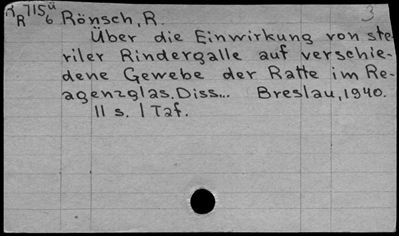 R 715ü/6 Rönsch, R. 3
Über die Einwirkung von ste-
riler Rindergalle auf verschie-
dene Gewebe der Ratte im Re-
agenzglas. Diss... Breslau, 1940.
11 s. 1 Taf.